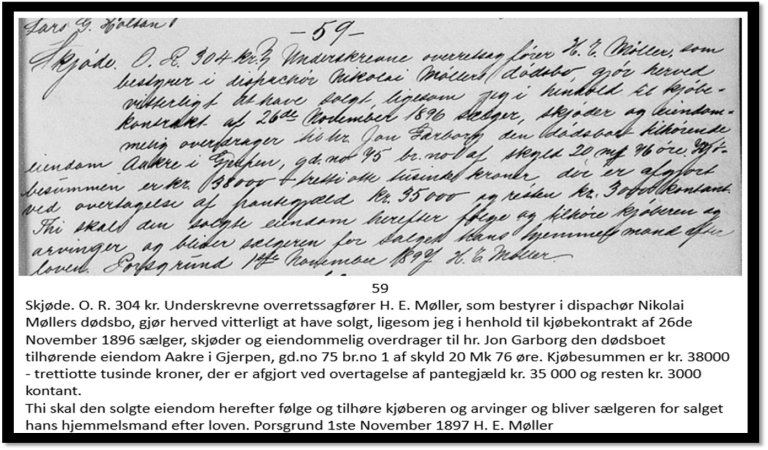 Lars G. Holsan
- 59 -
Skjøde. O. R. 304 kr. Underskrevne overretssagfører H. E. Møller, som
bestyrer i dispachør Nikolai Møllers dødsbo, gjør herved
vitterligt at have solgt, ligesom jeg i henhold til kjøbe-
kontrakt af 26de November 1896 sælger, skjøder og eiendom-
melig overdrager til hr. Jon Garborg den dødsboet tilhørende
eiendom Aakre i Gjerpen, gd.no 75 br.no af skyld 20 mk 76 øre. Kjø-
besummen er kr. 38000 - tretti otte tusinde kroner, der er afgjort
ved overtagelse af pantegjæld kr. 35000 og resten kr. 3000 kontant.
Thi skal den solgte eiendom herefter følge og tilhøre kjøberen og
arvinger og bliver sælgeren for salget hans hjemmelsmand efter
loven. Porsgrund 1ste November 1897 H. E. Møller.
59
Skjøde. O. R. 304 kr. Underskrevne overretssagfører H. E. Møller, som bestyrer i dispachør Nikolai
Møllers dødsbo, gjør herved vitterligt at have solgt, ligesom jeg i henhold til kjøbekontrakt af 26de
November 1896 sælger, skjøder og eiendommelig overdrager til hr. Jon Garborg den dødsboet
tilhørende eiendom Aakre i Gjerpen, gd.no 75 br.no 1 af skyld 20 Mk 76 øre. Kjøbesummen er kr. 38000
- trettiotte tusinde kroner, der er afgjort ved overtagelse af pantegjæld kr. 35 000 og resten kr. 3000
kontant.
Thi skal den solgte eiendom herefter følge og tilhøre kjøberen og arvinger og bliver sælgeren for salget
hans hjemmelsmand efter loven. Porsgrund 1ste November 1897 H. E. Møller